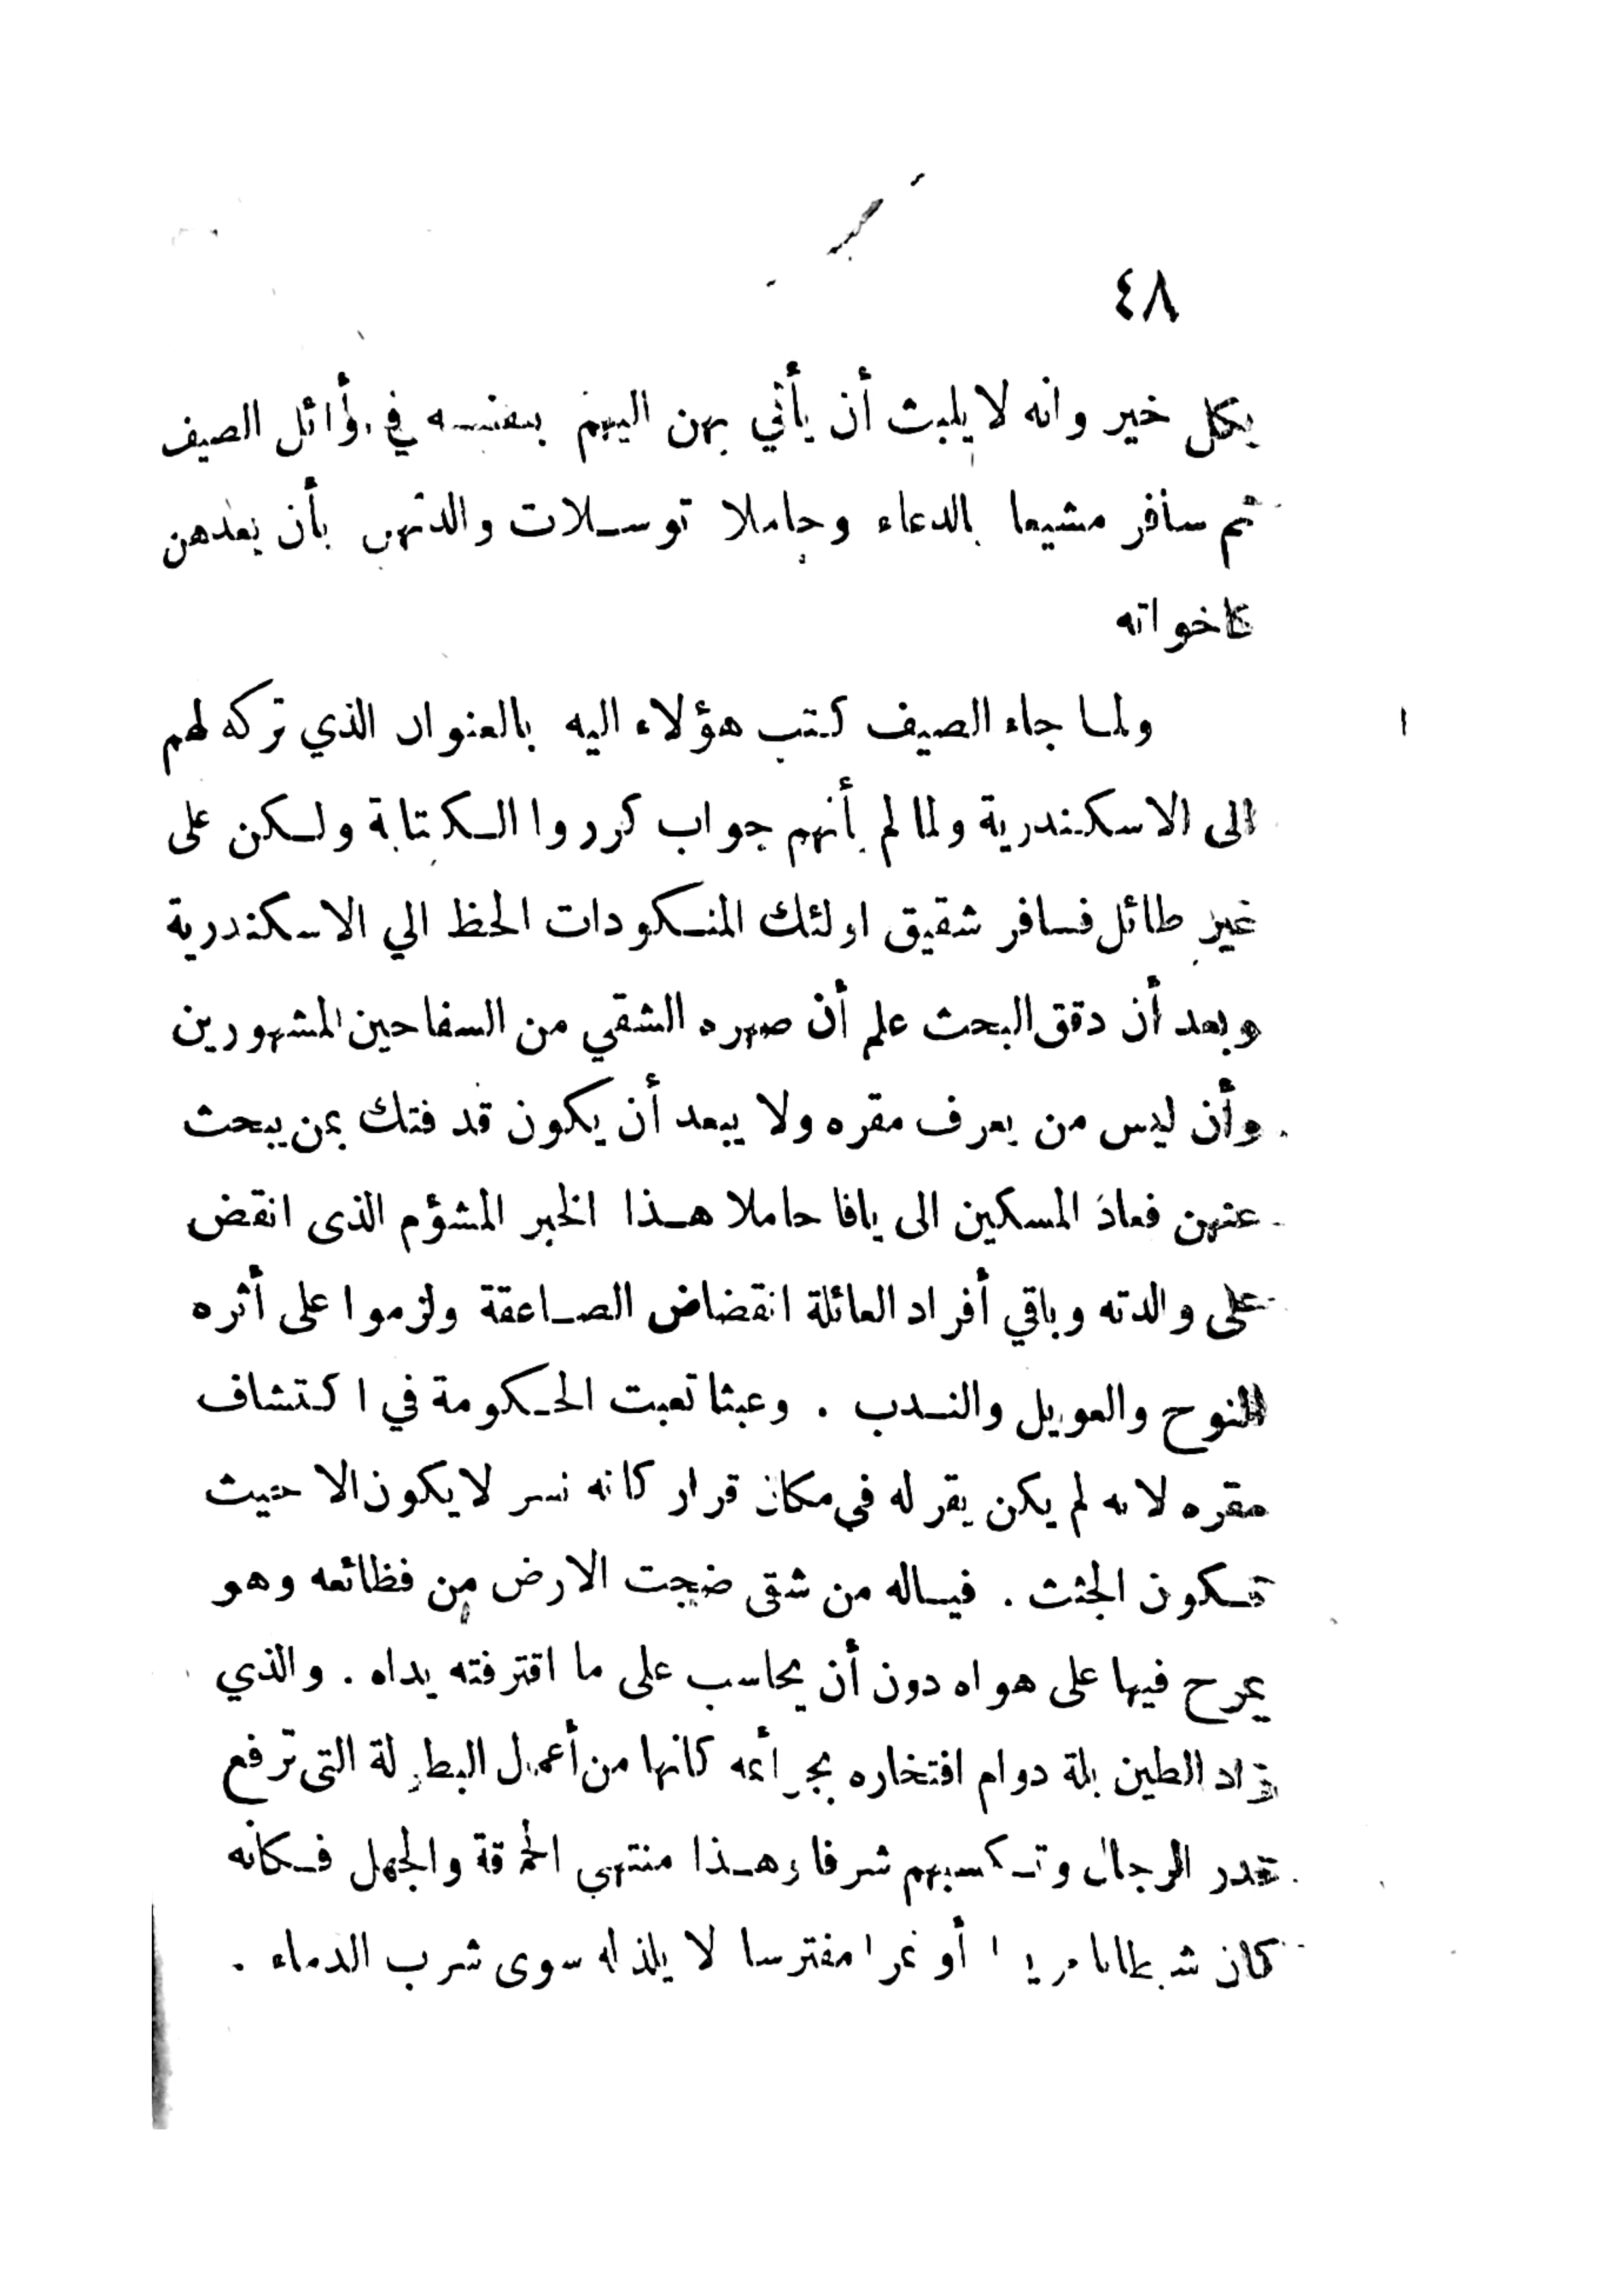 ٤٨
بكل خير وانه لا يلبث أن يأتي بهن اليهم بنفسه في أوائل الصيف
ثم سافر مشيعا بالدعاء وحاملا توسلات والدتهن بأن يعدهن
كاخواته
ولما جاء الصيف كتب هؤلاء اليه بالعنوان الذي تركه لهم
الى الاسكندرية ولما لم يأتهم جواب كرروا الكتابة ولكن على
غير طائل فسافر شقيق اولئك المنكودات الحظ الي الاسكندرية
وبعد أن دقق البحث علم أن صهره الشقي من السفاحين المشهورين
وأن ليس من يعرف مقره ولا يبعد أن يكون قد فتك بمن يبحث
عنهن فعاد المسكين الى يافا حاملا هذا الخبر المشؤم الذى انقض
على والدته وباقي أفراد العائلة انقضاض الصاعقة ولزموا على أثره
النوح والعويل والندب . وعبثا تعبت الحكومة في اكتشاف
مقره لانه لم يكن يقر له في مكان قرار كانه نسر لا يكون الا حيث
تكون الجثث . فياله من شقى ضجت الارض من فظائعه وهو
يمرح فيها على هواه دون أن يحاسب على ما اقترفته يداه . والذي
زاد الطين بلة دوام افتخاره بجرائمه كانها من أعمال البطولة التى ترفع
قدر الرجال وتكسبهم شرفا وهذا منتهى الحماقة والجهل فكانه
كان شيطانا مريدا أو نمرا مفترسا لا يلذ له سوى شرب الدماء .